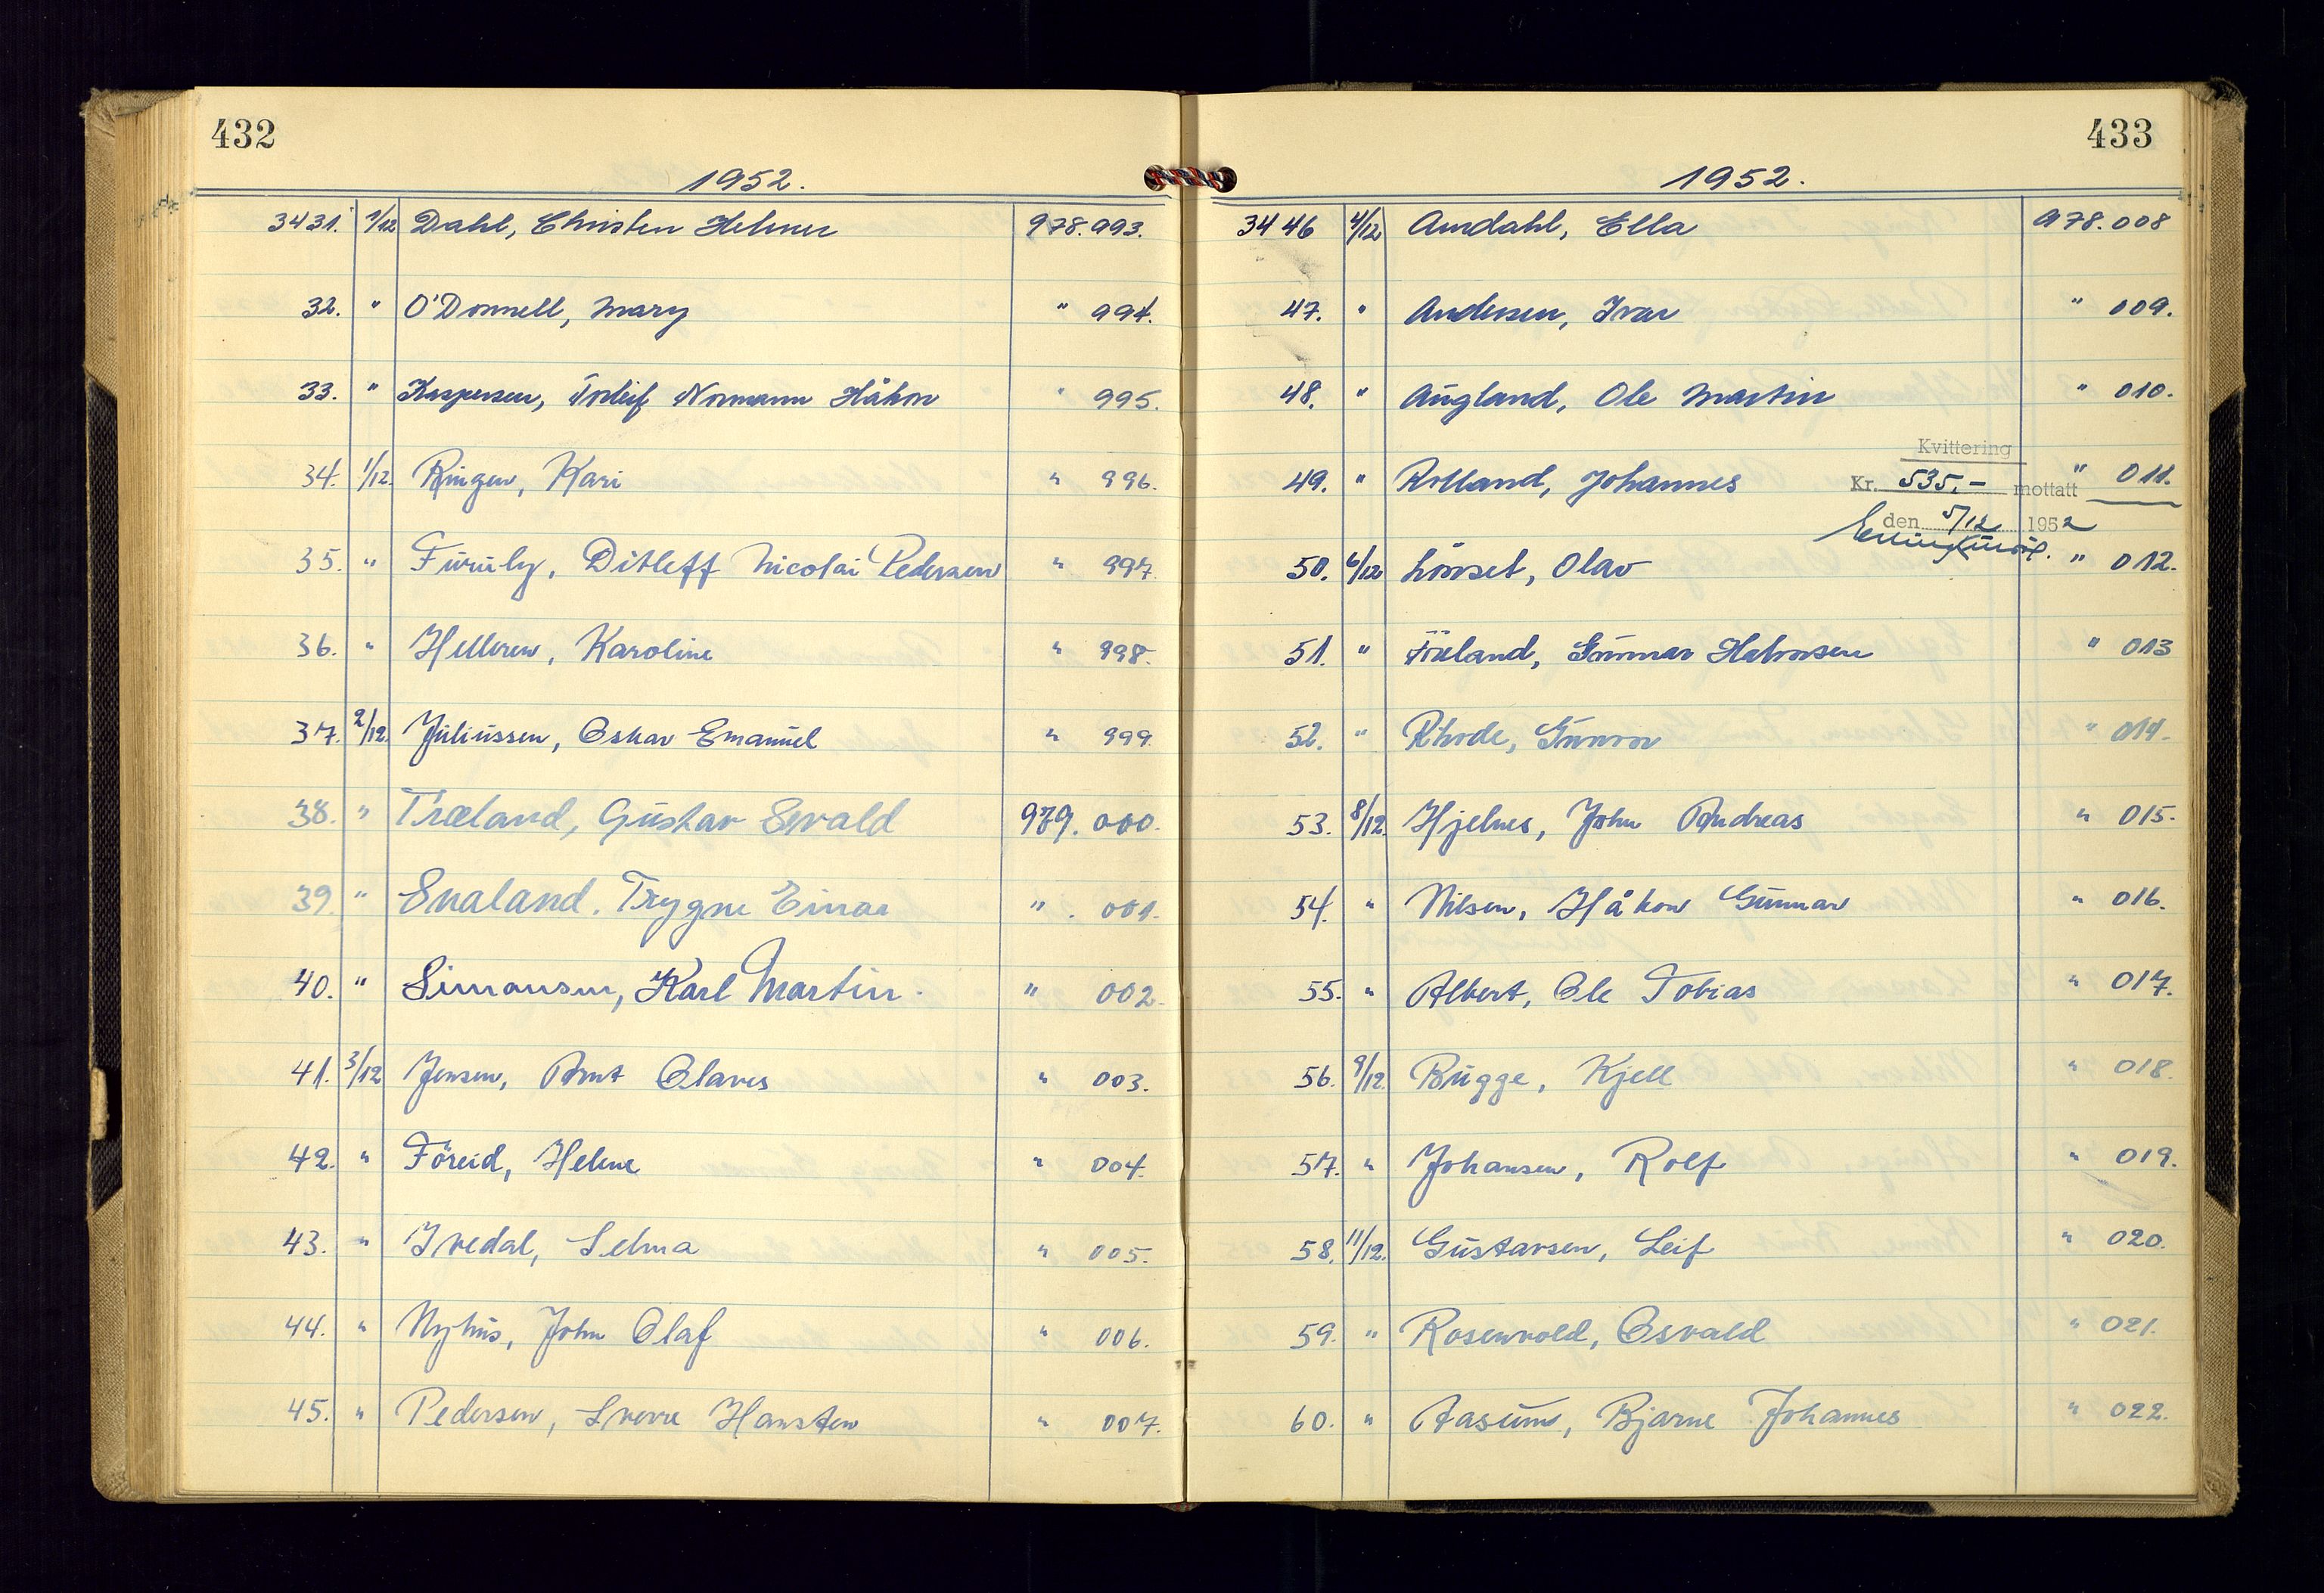 432
1952.
3431. 1/12 Dahl, Christen Helmer 978.993.
32. " O'Donnell, Mary " 994.
33. " Kaspersen, Torleif Normann Håkon " 995.
34. 1/12. Ringen, Kari " 996.
35. " Furuly, Ditleff Nicolai Pedersen " 997
36. " Helleren, Karoline " 998.
37. 2/12. Juliussen, Oskar Emanuel " 999.
38. " Træland, Gustav Evald 979.000.
39. " Enaland. Trygve Einar " . 001.
40. " Simonsen, Karl Martin. " 002.
41. 3/12 Jensen, Arnt Olaves " 003.
42. " Föreid, Helene " 004.
43. " Ivedal, Selma " 005.
44. " Nyhus, John Olaf " 006.
45. " Pedersen, Sverre Hansten " 007.
433
1952.
3446 4/12 Amdahl, Ella 978.008
47. " Andersen, Ivar " 009.
48. " Augland, Ole Martin " 010.
Kvittering
49. " Rolland, Johannes " 011.
Kr. 535.- mottatt
den 5/12 1952
50. 6/12 Lönset, Olav " 012.
51. " Föreland, Gunnar Halvorsen " 013
52. " Rhode, Gunvor " 014.
53. 8/12. Hjelnes, John Andreas " 015.
54. " Nilsen, Håkon Gunnar " 016.
55. " Albert, Ole Tobias " 017.
56. 9/12. Bugge, Kjell " 018.
57. " Johansen, Rolf " 019.
58. 11/12. Gustavsen, Leif " 020.
59. " Rosenvold, Osvald " 021.
60. " Aasum, Bjarne Johannes " 022.